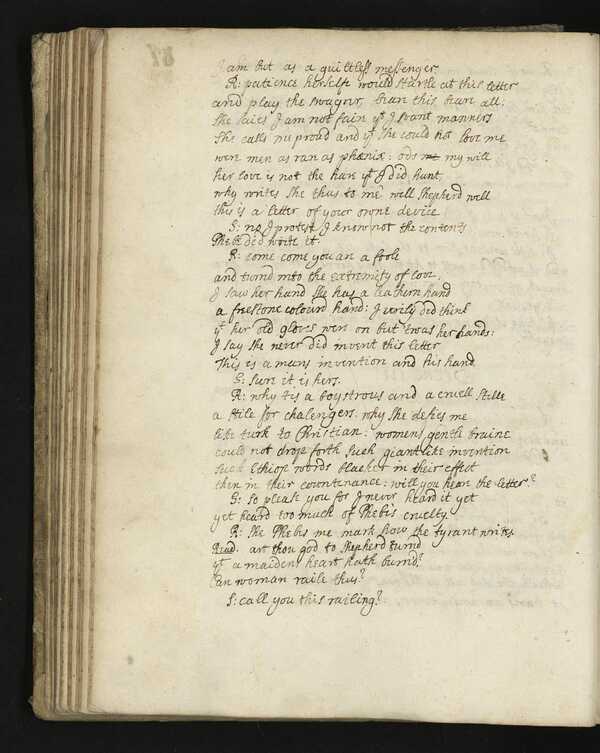 I am but as a guiltless messenger
R: patience herselfe would startle at this letter
and play the swagrir, bear this bear all:
She saies I am not fair yt I want manners
She calls me proud and yt She could not love me
were men as rar as phænix: ods my will
her love is not the hare yt I did hunt
why writes She thus to me well Shepherd well
this is a letter of your owne device
S: no I protest I know not the contents
Phebe did write it.
R: come come you ar a foole
and turnd into the extremity of love.
I saw her hand She has a leathern hand
a freestone colourd hand: I verily did think
yt her old gloves were on but twas her hands:
I say She never did invent this letter
This is a mans invention and his hand
S: Sure it is hers.
R: why tis a boystrous and a cruell stile
a stile for chalengers. why She defies me
like turk to Christian: womens gentle braine
could not drope forth such giantlike invention
Such Ethiop words blacker in their effect
then in their countinance: will you hear the letter?
S: so please you for I never heard it yet
yet heard too much of Phebis cruelty
R: She Phebis me mark how the tyrant writes
Read. art thou god to Shepherd turnd
yt a maidens heart hath burnd?
Can woman raile thus?
S: call you this railing?